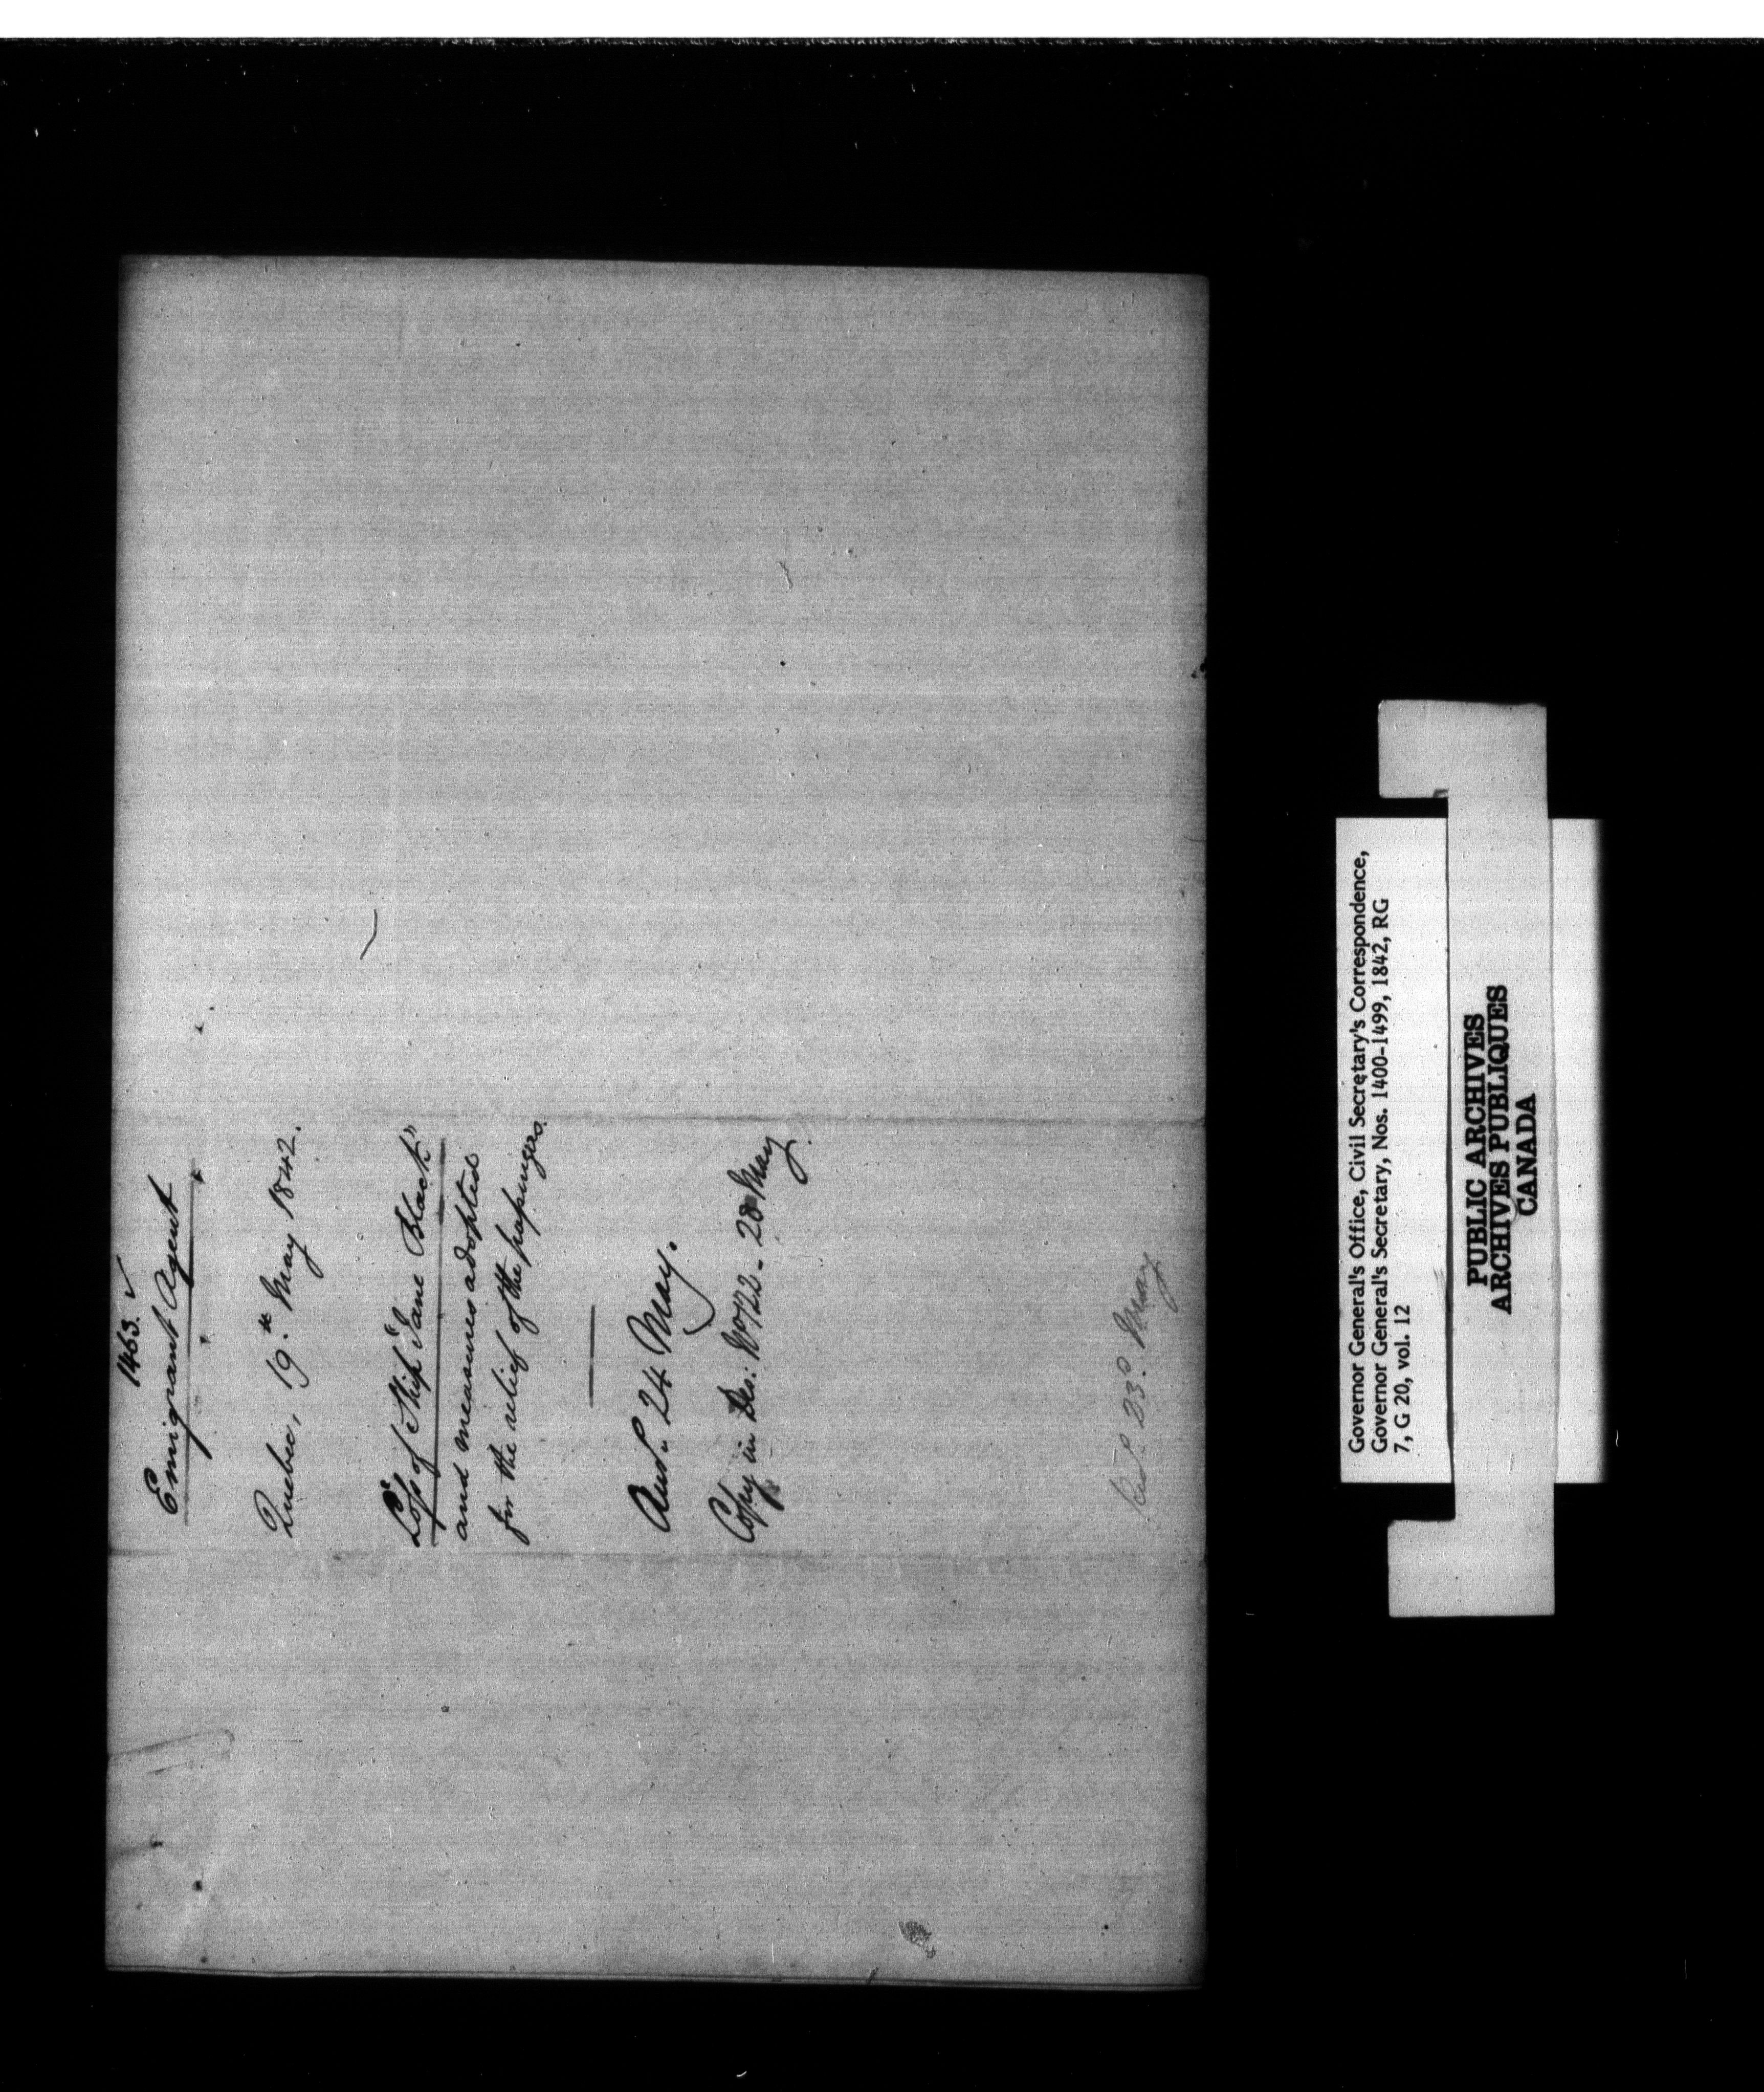 1463. ✓
Emigrant Agent
Quebec, 19.th May 1842.
Loss of Ship "Jane Black"
and measures adopted
for the relief of the passengers.
Ansd. 24 May.
Copy in Des: No 122 - 28 May
Recd. 23d. May
Governor General's Office, Civil Secretary's Correspondence,
Governor General's Secretary, Nos. 1400-1499, 1842, RG
7, G 20, vol. 12
PUBLIC ARCHIVES
ARCHIVES PUBLIQUES
CANADA